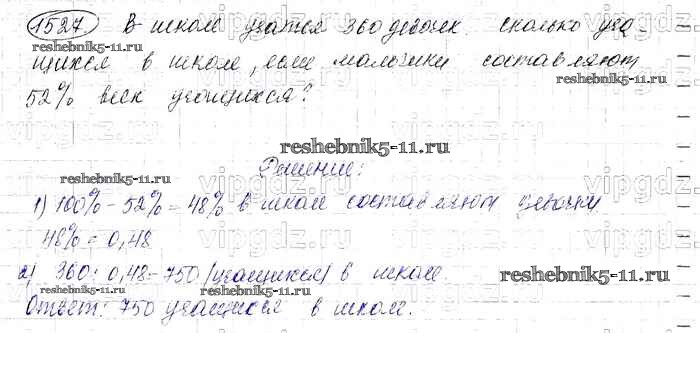 1527 В школе учатся 360 девочек. Сколько уча-
reshebnik5-11.ru
щихся в школе, если мальчики составляют
reshebnik5-11.ru
52% всех учащихся?
vipgdz.ru
reshebnik5-11.ru
Решение:
reshebnik5-11.ru
1) 100% - 52% = 48% в школе составляют девочки
48% = 0,48
2) 360 : 0,48 = 750 (учащихся) в школе.
reshebnik5-11.ru
reshebnik5-11.ru reshebnik5-11.ru
Ответ: 750 учащихся в школе.